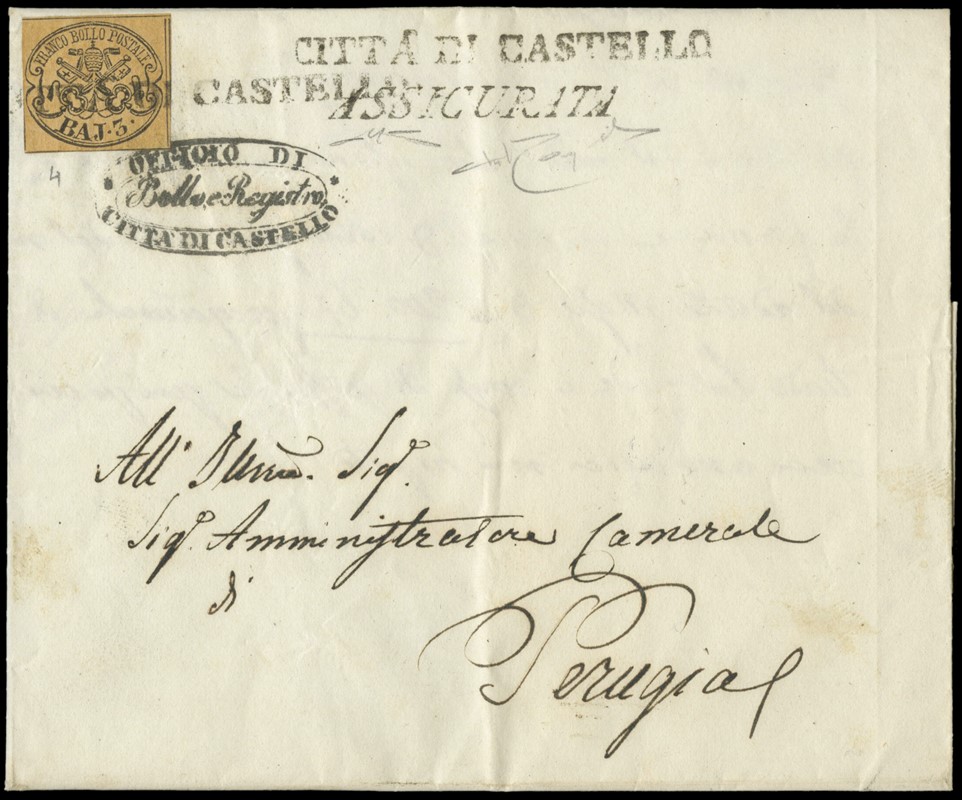 FRANCO BOLLO POSTALE
BAJ. 3.
CITTÀ DI CASTELLO
DI CASTELLO
ASSICURATA
4
OFFICIO DI
Bollo e Registro
CITTÀ DI CASTELLO
All' Illmo. Sigr.
Sigr. Amministratore Camerale
di
Perugia